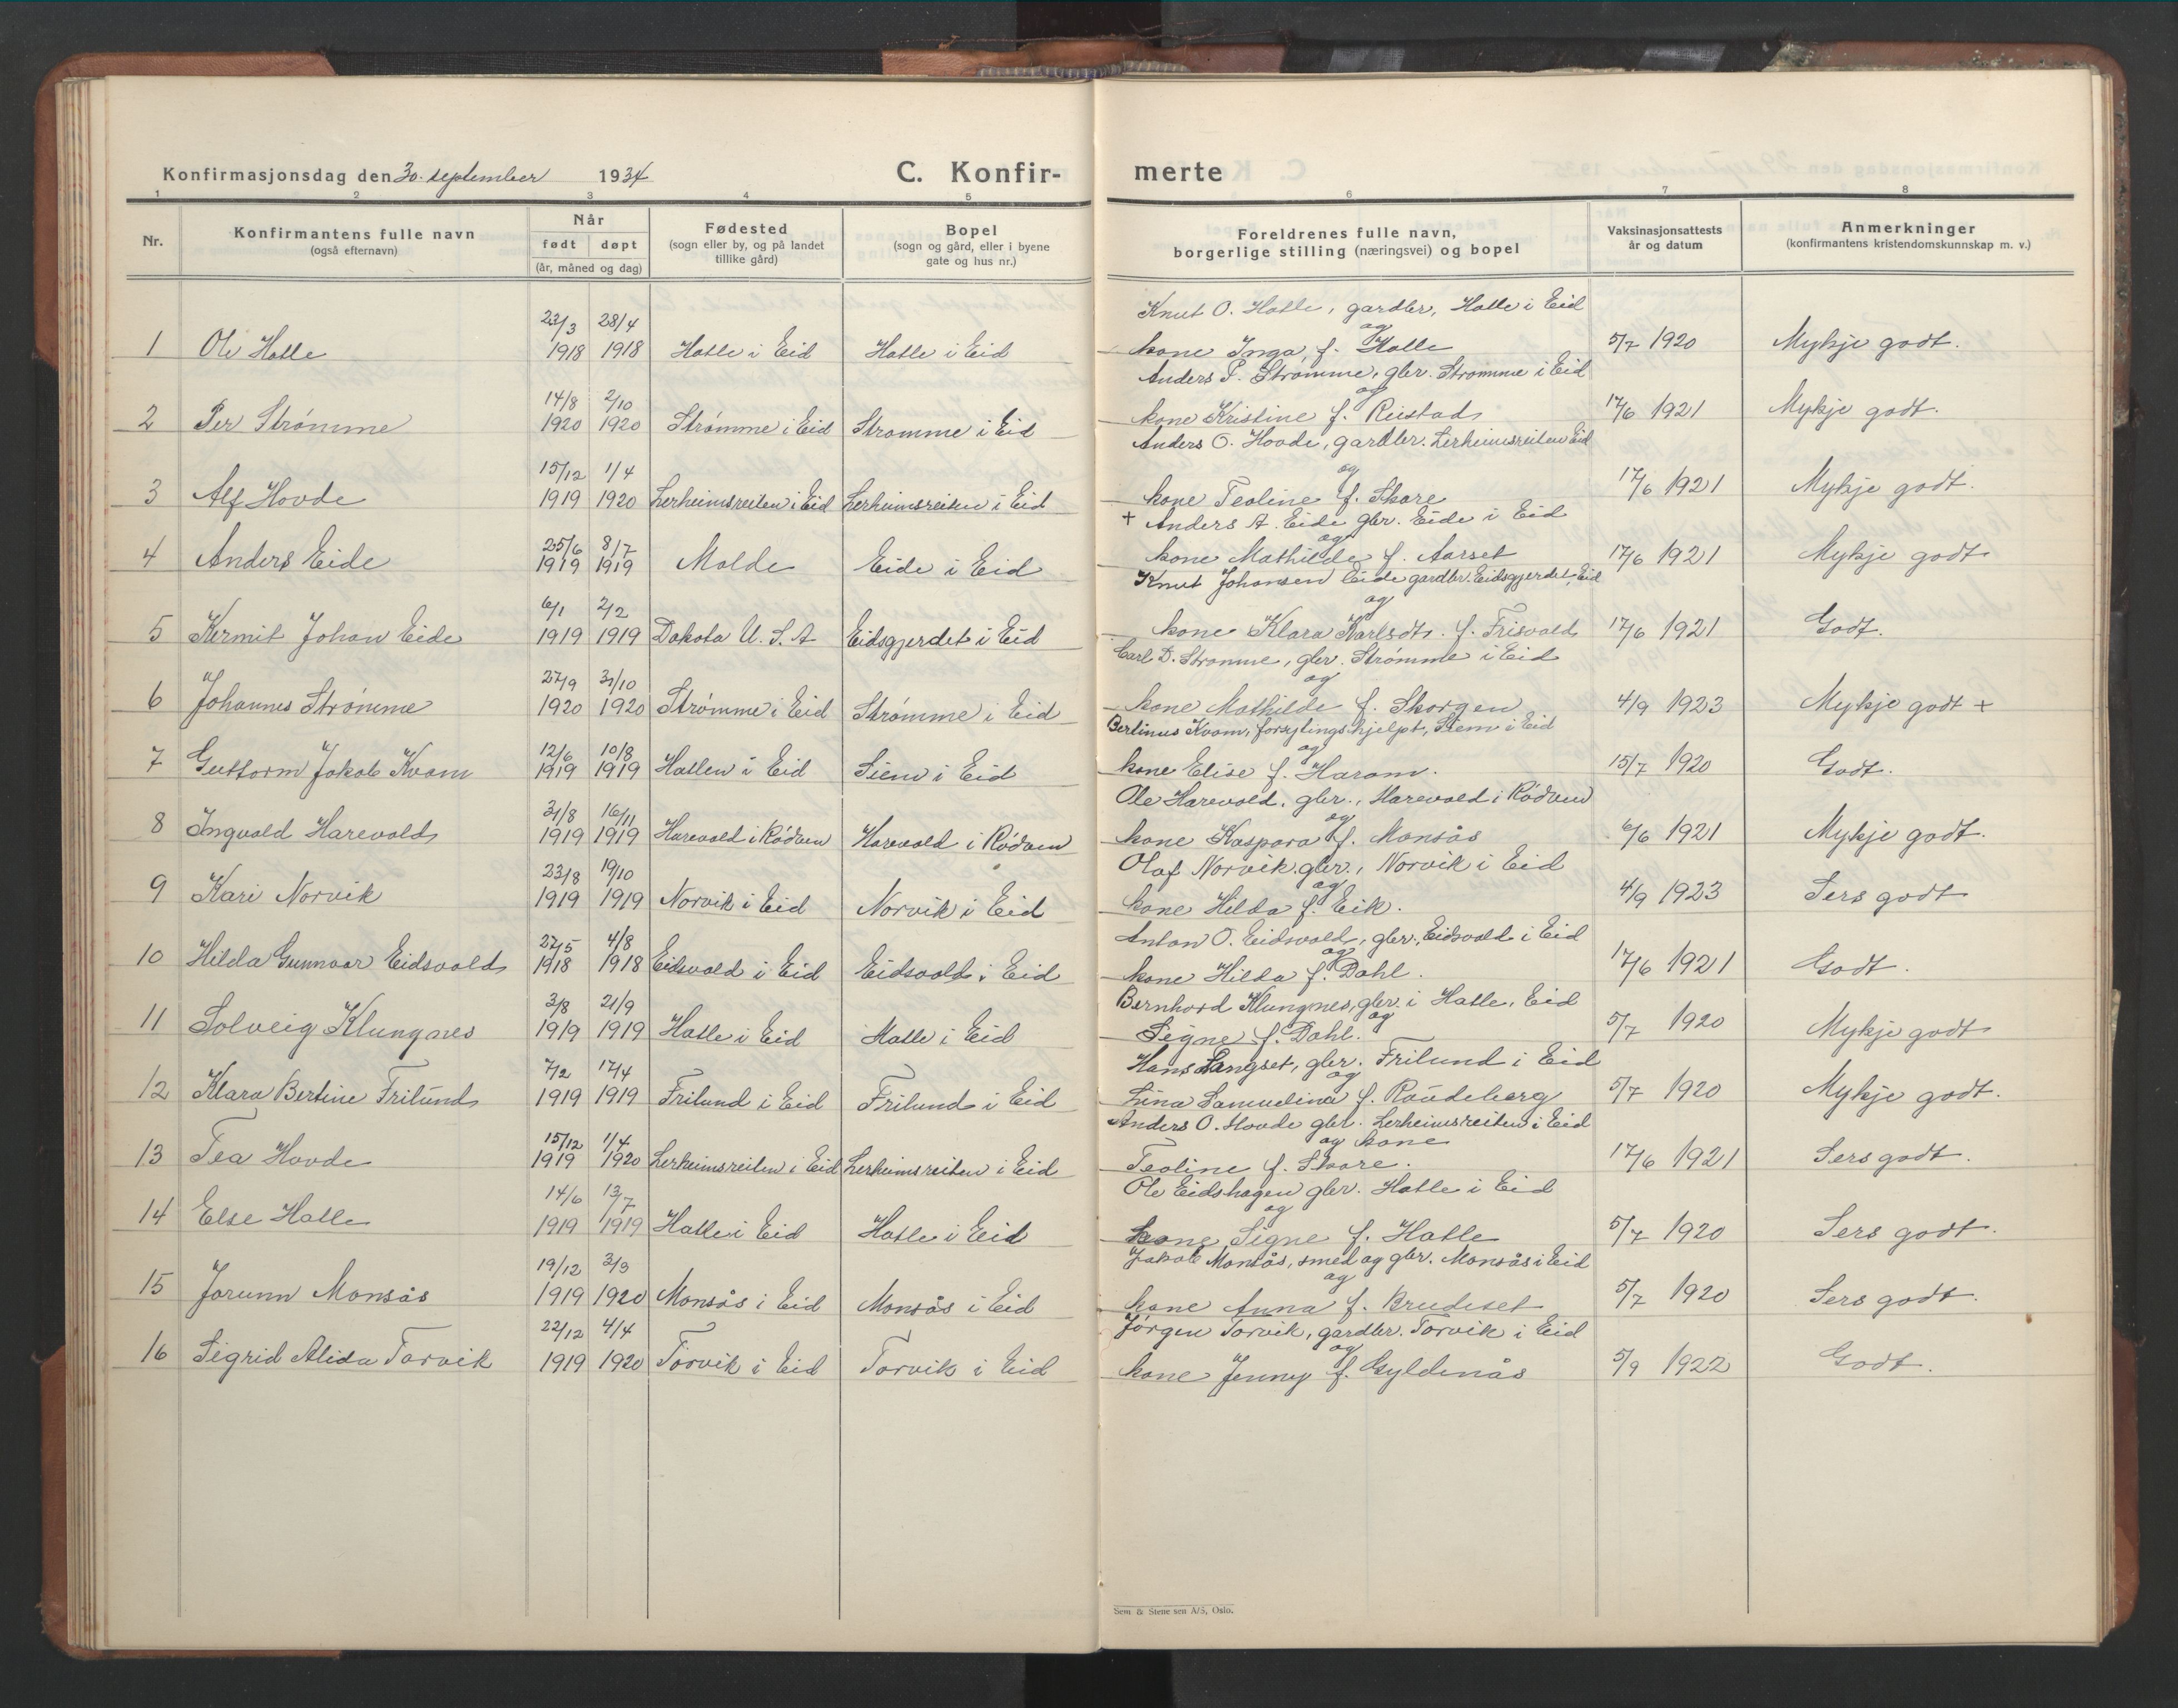 Konfirmasjonsdag den 30. september 1934
C. Konfir-
merte
1 2 3 4 5 6 7 8
Nr.
Konfirmantens fulle navn
(også efternavn)
Når
født døpt
(år, måned og dag)
Fødested
(sogn eller by, og på landet
tillike gård)
Bopel
(sogn og gård, eller i byene
gate og hus nr.)
Foreldrenes fulle navn,
borgerlige stilling (næringsvei) og bopel
Vaksinasjonsattests
år og datum
Anmerkninger
(konfirmantens kristendomskunnskap m. v.)
23/3 28/4 Knut O. Hatle, gardbr, Hatle i Eid
og
1 Ole Hatle 1918 1918 Hatle i Eid Hatle i Eid kone Inga, f. Hatle 5/7 1920 Mykje godt.
14/8 2/10 Anders P. Strømme, gbr. Strømme i Eid
og
2 Per Strømme 1920 1920 Strømme i Eid Strømme i Eid kone Kristine f. Reistad 17/6 1921 Mykje godt.
15/12 1/4 Anders O. Hovde, gardbr. Lerheimsreiten Eid
og
3 Alf Hovde 1919 1920 Lerheimsreiten i Eid Lerheimsreiten i Eid kone Teoline f. Skare 17/6 1921 Mykje godt.
25/6 8/7 + Anders A. Eide gbr. Eide i Eid
og
4 Anders Eide 1919 1919 Molde Eide i Eid kone Mathilde f. Aarset 17/6 1921 Mykje godt
6/1 2/2 Knut Johansen Eide gardbr. Eidsgjerdet, Eid
og
5 Kermit Johan Eide 1919 1919 Dakota U.S.A Eidsgjerdet i Eid kone Klara Karlsdtr. f. Frisvold 17/6 1921 Godt.
27/9 31/10 Carl D. Strømme, gbr. Strømme i Eid
og
6 Johannes Strømme 1920 1920 Strømme i Eid Strømme i Eid kone Mathilde f. Skorgen 4/9 1923 Mykje godt +
12/6 10/8 Bertinus Kvam, forsytingshjelpt, Siem i Eid
og
7 Guttorm Jakob Kvam 1919 1919 Hatlen i Eid Siem i Eid kone Elise f. Haram. 15/7 1920 Godt.
31/8 16/11 Ole Harevold, gbr., Harevold i Rødven
og
8 Ingvald Harevold 1919 1919 Harevold i Rødven Harevold i Rødven kone Kaspara f. Monsås 6/6 1921 Mykje godt.
23/8 19/10 Olaf Norvik gbr., Norvik i Eid
og
9 Kari Norvik 1919 1919 Norvik i Eid Norvik i Eid kone Hilda f. Eik. 4/9 1923 Sers godt
27/5 4/8 Anton O. Eidsvold, gbr., Eidsvold i Eid
og
10 Hilda Gunnvor Eidsvold 1918 1918 Eidsvold i Eid Eidsvold i Eid kone Hilda f. Dahl. 17/6 1921 Godt.
3/8 21/9 Bernhard Klungnes, gbr. i Hatle, Eid
og
11 Solveig Klungnes 1919 1919 Hatle i Eid Hatle i Eid Signe f. Dahl. 5/7 1920 Mykje godt
7/2 17/4 Hans Langset, gbr. Frilund i Eid
og
12 Klara Bertine Frilund 1919 1919 Frilund i Eid Frilund i Eid Lina Samuelina f. Raudeberg 5/7 1920 Mykje godt.
15/12 1/4 Anders O. Hovde gbr. Lerheimsreiten i Eid
og kone
13 Tea Hovde 1919 1920 Lerheimsreiten i Eid Lerheimsreiten i Eid Teoline f. Skare. 17/6 1921 Sers godt.
14/6 13/7 Ole Eidshagen gbr. Hatle i Eid
og
14 Else Hatle 1919 1919 Hatle i Eid Hatle i Eid kone Signe f. Hatle 5/7 1920 Sers godt.
19/12 3/3 Jakob Monsås, smed og gbr. Monsås i Eid
og
15 Jorunn Monsås 1919 1920 Monsås i Eid Monsås i Eid kone Anna f. Brudeset 5/7 1920 Sers godt.
22/12 4/4 Jørgen Torvik, gardbr. Torvik i Eid
og
16 Sigrid Alida Torvik 1919 1920 Torvik i Eid Torvik i Eid kone Jenny f. Gyldenås 5/9 1922 Godt.
Sem & Stenersen A/S, Oslo.